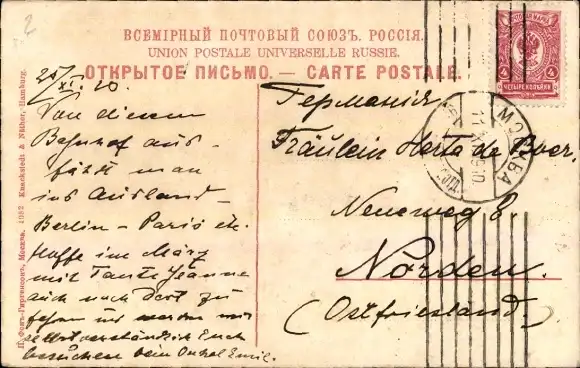 ВСЕМІРНЫЙ ПОЧТОВЫЙ СОЮЗЪ. РОССІЯ.
UNION POSTALE UNIVERSELLE RUSSIE.
ОТКРЫТОЕ ПИСЬМО. — CARTE POSTALE.
ПОЧТОВАЯ МАРКА
4 4
ЧЕТЫРЕ КОПѢЙКИ
МОСКВА
Von diesem
Bahnhof aus-
fährt man
ins Ausland-
Berlin - Paris etc.
Hoffe im März
mit Tante Jeanne
auch nach Dort zu
fahren und werden wir
selbstverständlich Euch
besuchen beim Onkel Emil.
Германія
Fräulein Herta de Boer,
Neueweg 8.
Norden.
(Ostfriesland.)
Knackstedt & Näther, Hamburg.
Москва. 1082